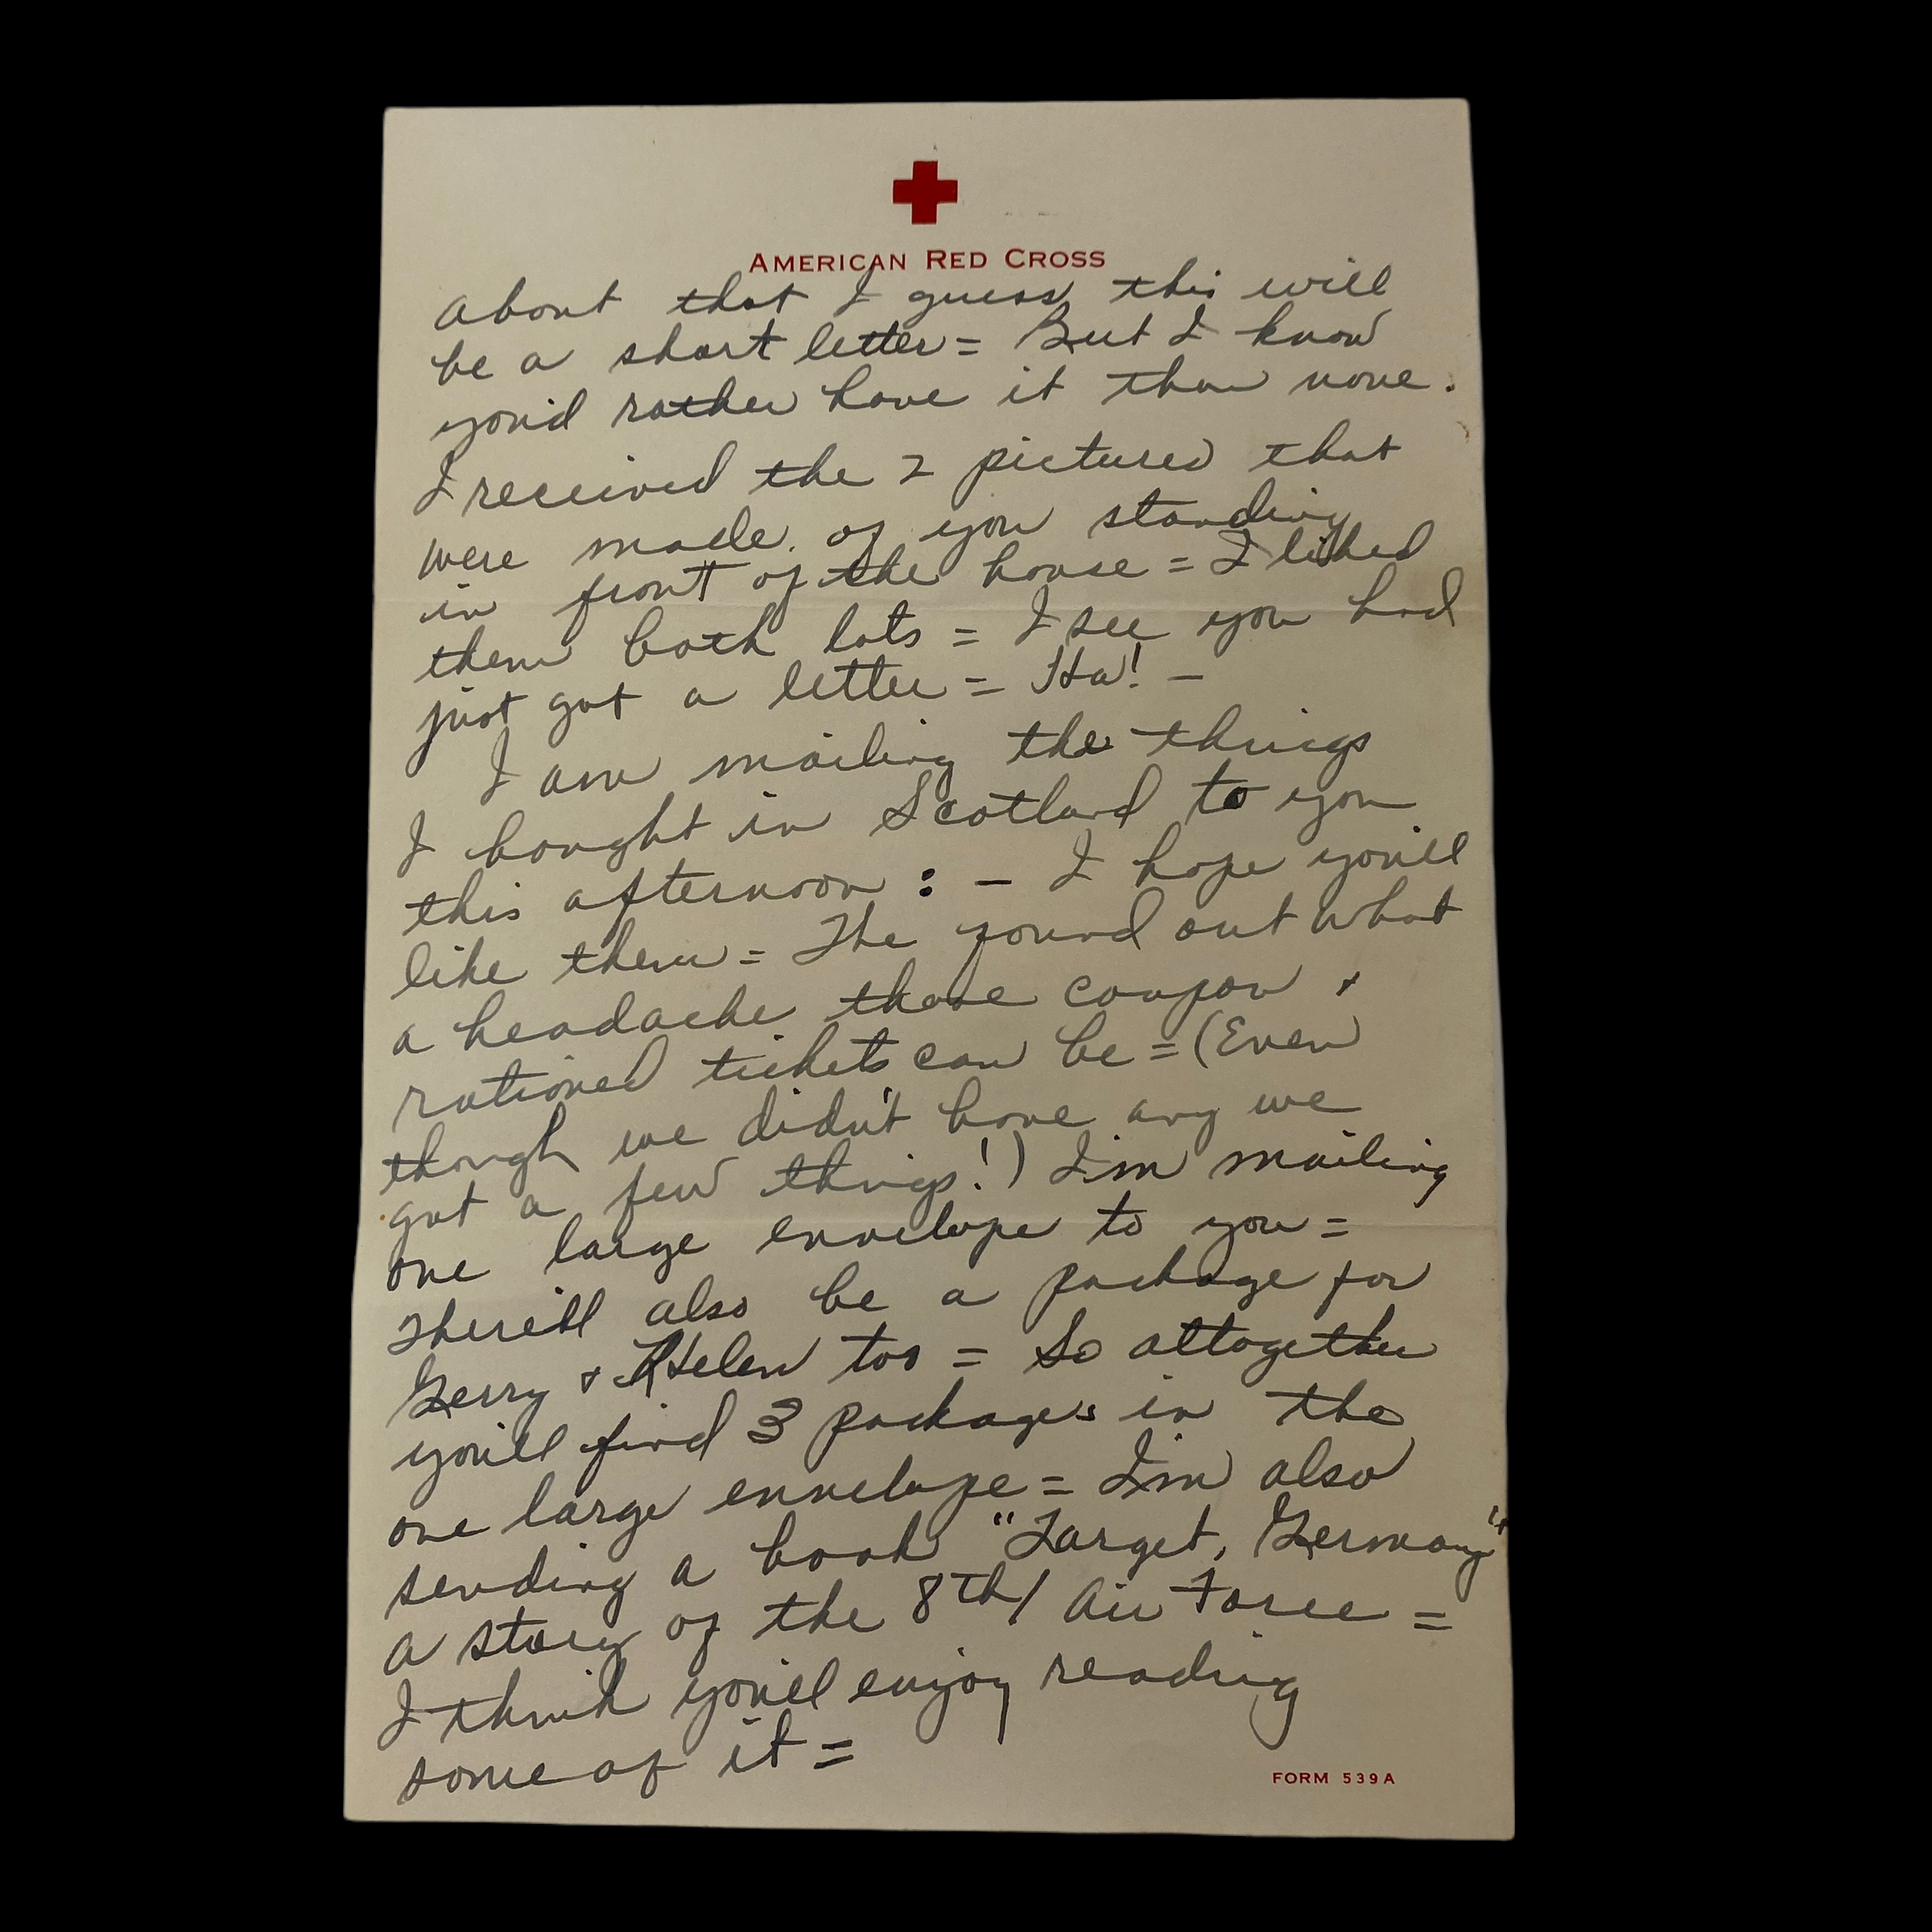 AMERICAN RED CROSS
about that I guess this will
be a short letter = But I know
you'd rather have it than none.
I received the 2 pictures that
were made of you standing
in front of the house = I liked
them both lots = I see you had
just got a letter = Ha! —
I am mailing the things
I bought in Scotland to you
this afternoon : — I hope you'll
like them = The found out what
a headache those coupon +
rationed tickets can be = (Even
though we didn't have any we
got a few things!) I'm mailing
one large envelope to you =
There'll also be a package for
Gerry + Helen too = So altogether
you'll find 3 packages in the
one large envelope = I'm also
sending a book "Target, Germany"
a story of the 8th/ Air Force =
I think you'll enjoy reading
some of it =
FORM 539A